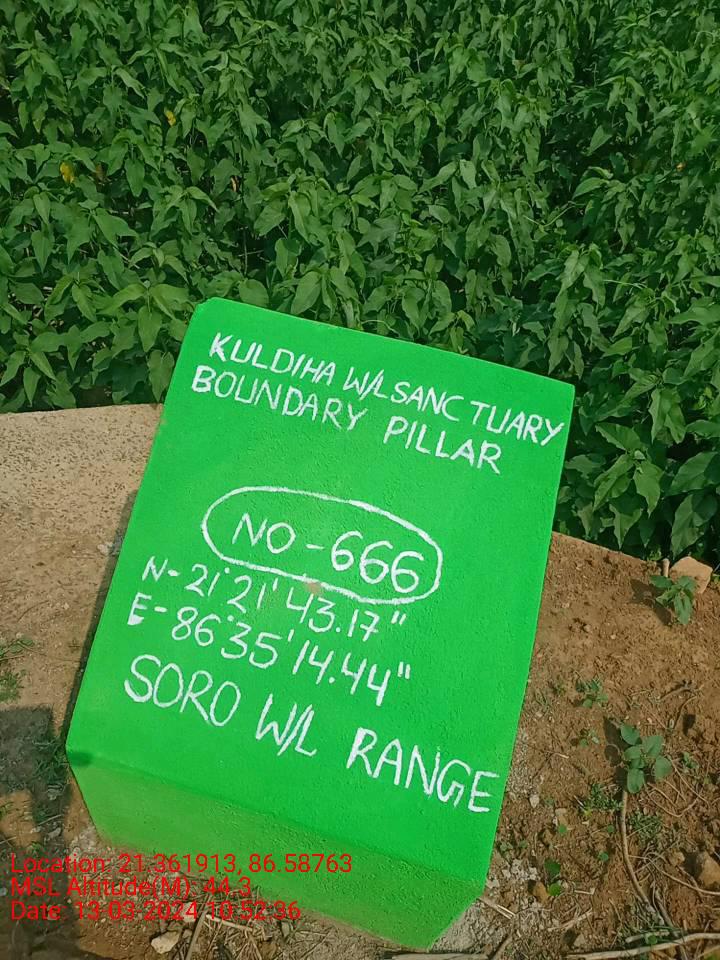 KULDIHA W/L SANCTUARY
BOUNDARY PILLAR
NO-666
N-21°21'43.17"
E-86°35'14.44"
SORO W/L RANGE
Location: 21.361913, 86.58763
MSL Altitude(M): 44.3
Date: 13-03-2024 10:52:36